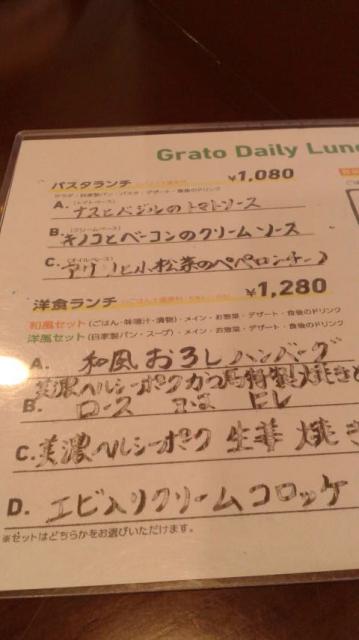 Grato Daily Lun
パスタランチ ¥1,080
サラダ・自家製パン・パスタ・デザート・食後のドリンク
A. (トマトベース)
ナスとバジルのトマトソース
B. (クリームベース)
キノコとベーコンのクリームソース
C. (オイルベース)
アサリと小松菜のペペロンチーノ
洋食ランチ ¥1,280
和風セット (ごはん・味噌汁・漬物)・メイン・お惣菜・デザート・食後のドリンク
洋風セット (自家製パン・スープ)・メイン・お惣菜・デザート・食後のドリンク
A. 和風おろしハンバーグ
美濃ヘルシーポークカツ
B. ロース ヒレ
C. 美濃ヘルシーポーク 生姜 焼き
D. エビ入りクリームコロッケ
※セットはどちらかをお選びいただけます。